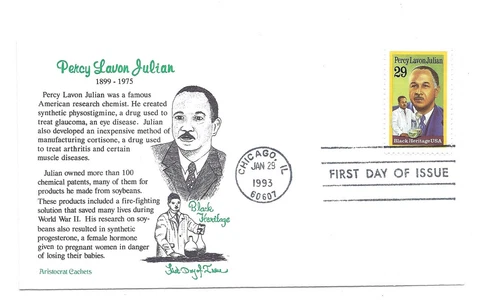 Percy Lavon Julian
1899 - 1975
Percy Lavon Julian was a famous
American research chemist. He created
synthetic physostigmine, a drug used to
treat glaucoma, an eye disease. Julian
also developed an inexpensive method of
manufacturing cortisone, a drug used
to treat arthritis and certain
muscle diseases.
Julian owned more than 100
chemical patents, many of them for
products he made from soybeans.
These products included a fire-fighting
solution that saved many lives during
World War II. His research on soy-
beans also resulted in synthetic
progesterone, a female hormone
given to pregnant women in danger
of losing their babies.
Aristocrat Cachets
Black
Heritage
First Day of Issue
CHICAGO, IL
JAN 29
1993
60607
Percy Lavon Julian
29
Black Heritage USA
FIRST DAY OF ISSUE